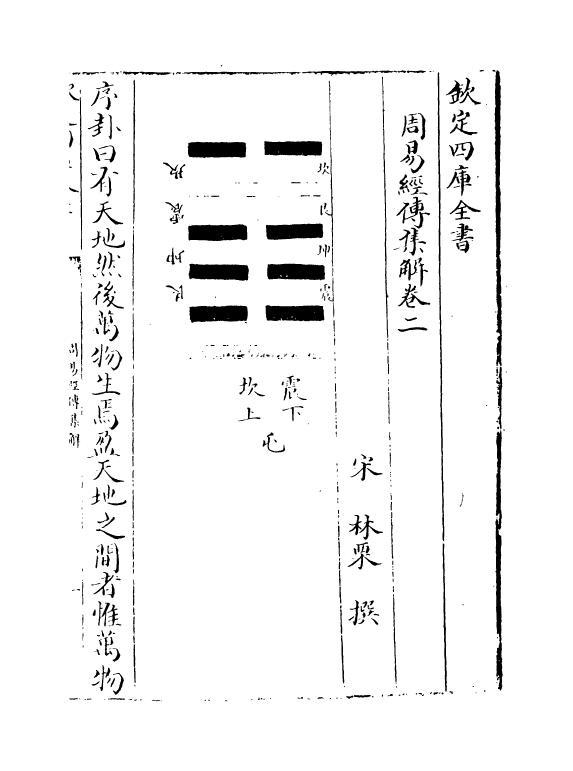 欽定四庫全書
周易經傳集解卷二
宋 林栗 撰
坎
艮
坤
震
坎
震
坤
艮
震下
坎上
屯
序卦曰有天地然後萬物生焉盈天地之間者惟萬物
周易經傳集解
一